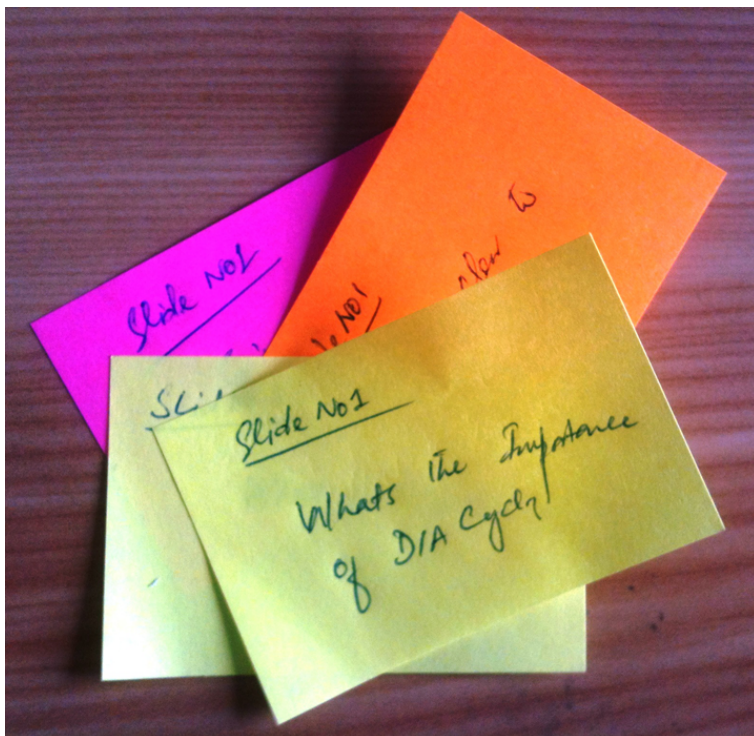 Slide No1
to
No1
Sli
Slide No1
Whats the Importance
of D/A Cycle